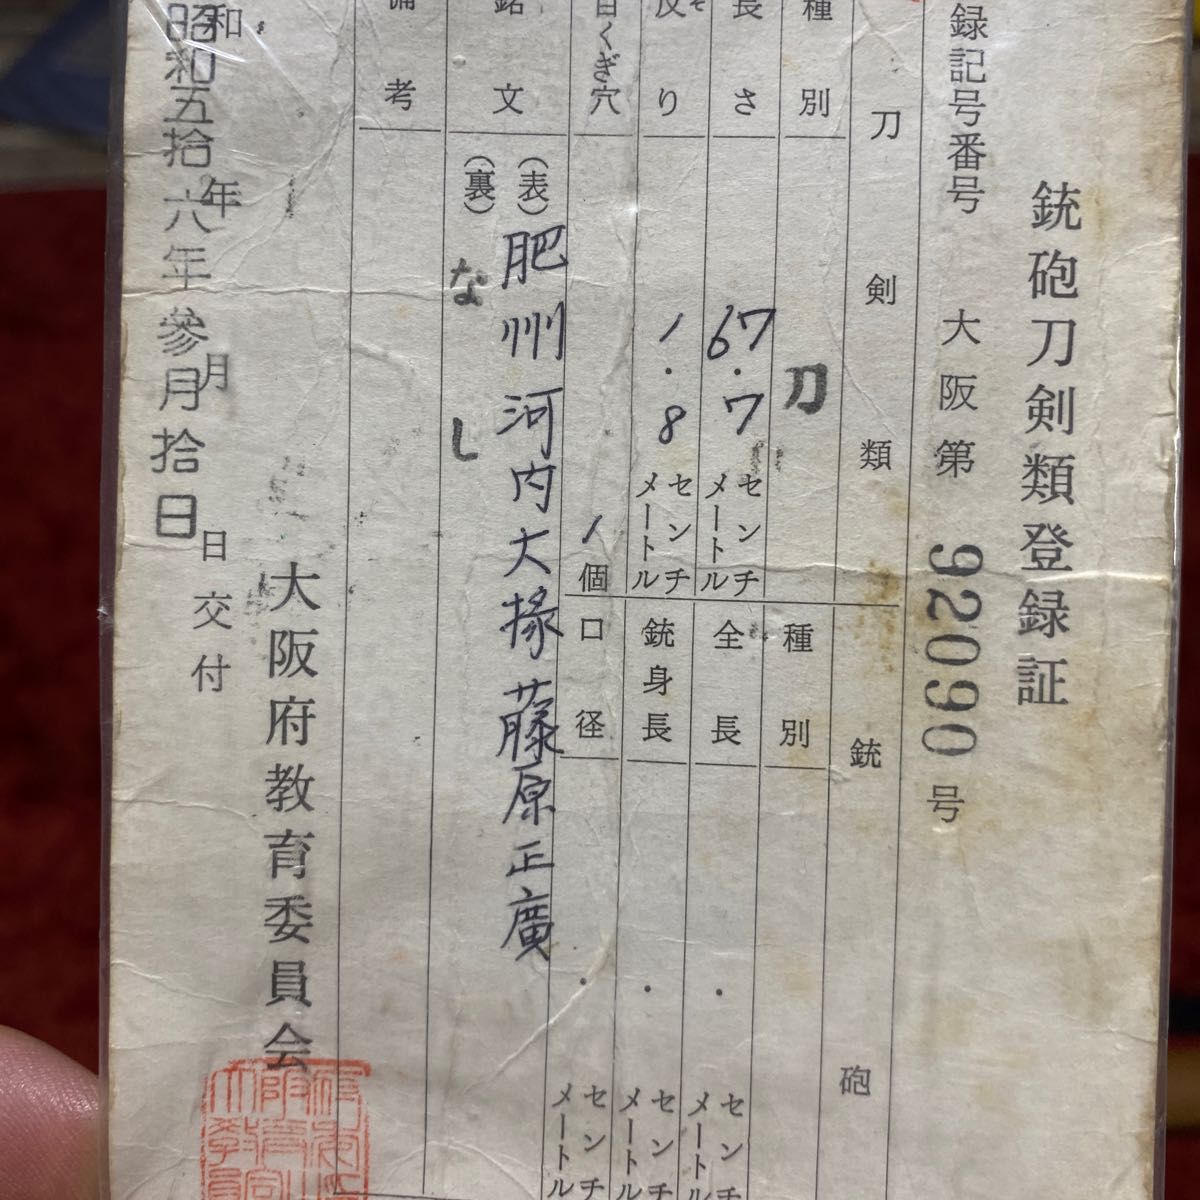 銃砲刀剣類登録証
録記号番号 大阪第 92090 号
刀剣類
銃砲
種別 刀
長さ 67.7 センチメートル
反り 1.8 センチメートル
目くぎ穴 1個
銘文
(表) 肥州河内大掾藤原正廣
(裏) なし
備考
種別
全長 . センチメートル
銃身長 . センチメートル
口径 . センチメートル
和 年 月 日交付
昭和五拾六年参月拾日
大阪府教育委員会